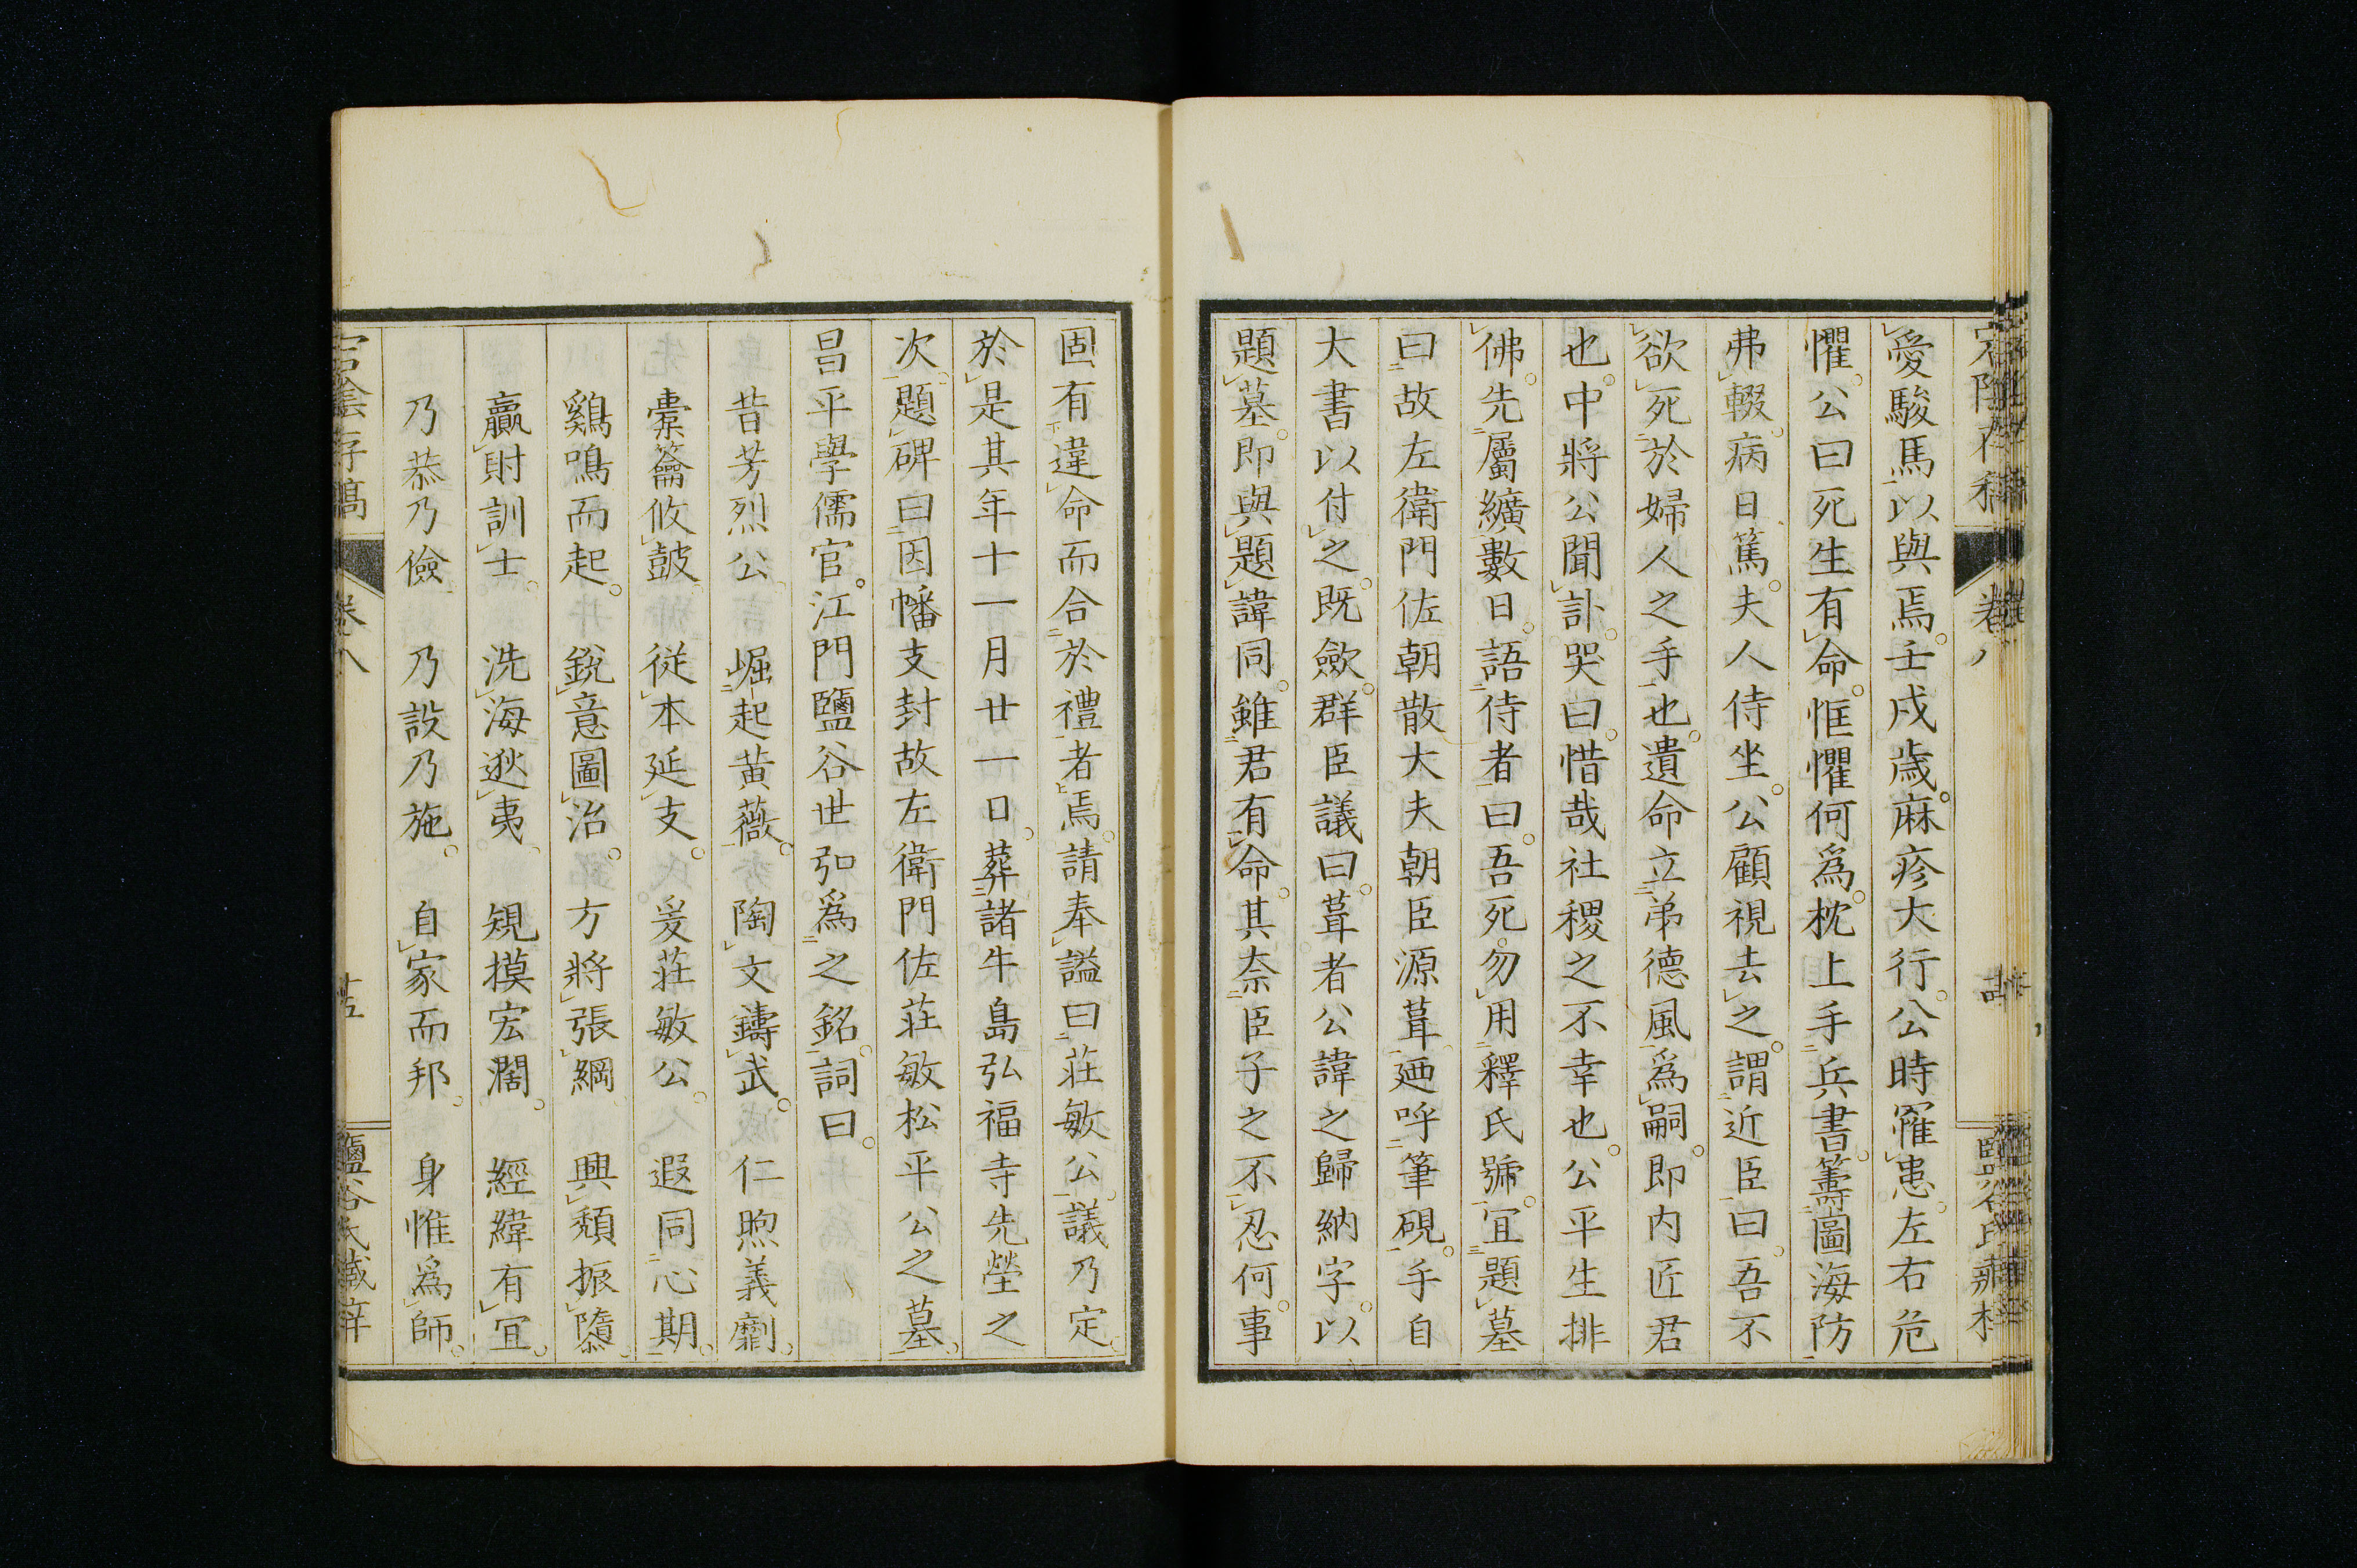 愛駿馬以與焉。壬戌歳。麻疹大行。公時罹患。左右危
懼。公曰死生有命。恇懼何爲。枕上手兵書。籌圖海防
弗輟。病日篤。夫人侍坐。公顧視去之。謂近臣曰。吾不
欲死於婦人之手也。遺命立弟德風爲嗣。即内匠君
也。中將公聞訃。哭曰。惜哉社稷之不幸也。公平生排
佛。先屬纊數日。語侍者曰。吾死。勿用釋氏號。宜題墓
曰故左衛門佐朝散大夫朝臣源葺。廼呼筆硯。手自
大書以付之。既歛。群臣議曰。葺者公諱之歸納字。以
題墓。即與題諱同。雖君有命。其奈臣子之不忍何。事
固有違命而合於禮者焉。請奉謚曰莊敏公。議乃定。
於是其年十一月廿一日。葬諸牛島弘福寺先塋之
次。題碑曰因幡支封故左衛門佐莊敏松平公之墓。
昌平學儒官。江門鹽谷世弘爲之銘。詞曰。
昔芳烈公。 崛起黄薇。 陶文鑄武。 仁煦義劘。
橐籥攸鼓。 從本延支。 爰莊敏公。 遐同心期。
鷄鳴而起。 銳意圖治。 方將張綱。 興頽振隳。
贏財訓士。 洗海逖夷。 規摸宏濶。 經緯有宜。
乃恭乃儉。 乃設乃施。 自家而邦。 身惟爲師。
宕陰存稿 卷八 廿五 鹽谷氏藏梓